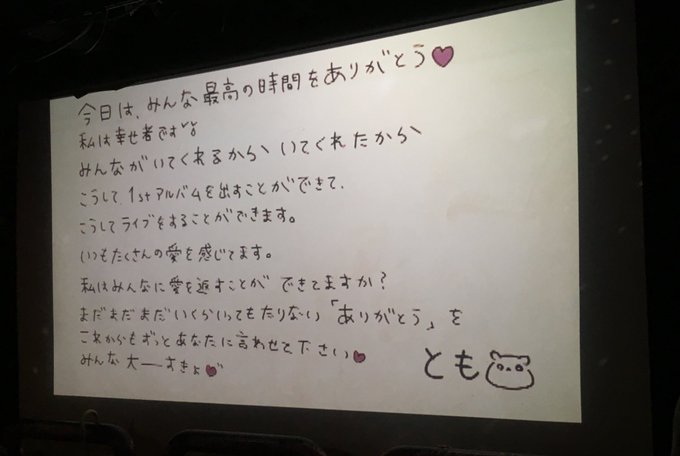 今日は、みんな最高の時間をありがとう♥
私は幸せ者です
みんながいてくれるから、いてくれたから、
こうして1stアルバムを出すことができて、
こうしてライブをすることができます。
いつもたくさんの愛を感じてます。
私はみんなに愛を返すことができてますか?
まだまだまだいくらいってもたりない「ありがとう」を
これからもずっとあなたに言わせて下さい♥
みんな大ーすきょ♥
とも